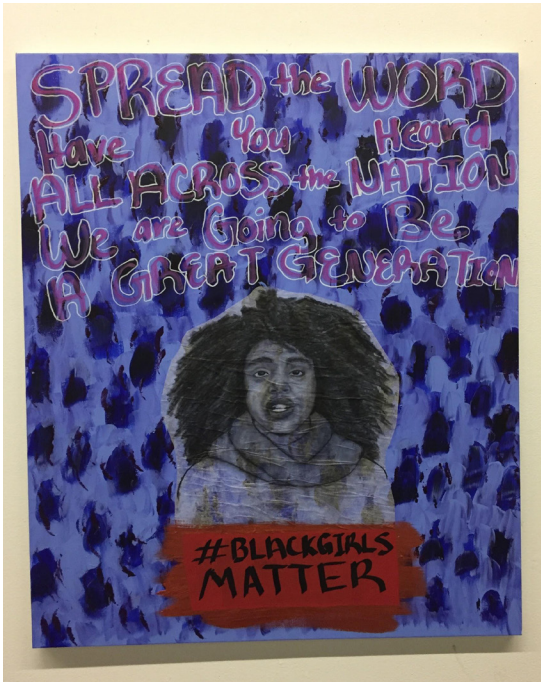 SPREAD the WORD
Have You Heard
ALL ACROSS the NATION
We are Going to Be
A GREAT GENERATION
#BLACKGIRLS
MATTER